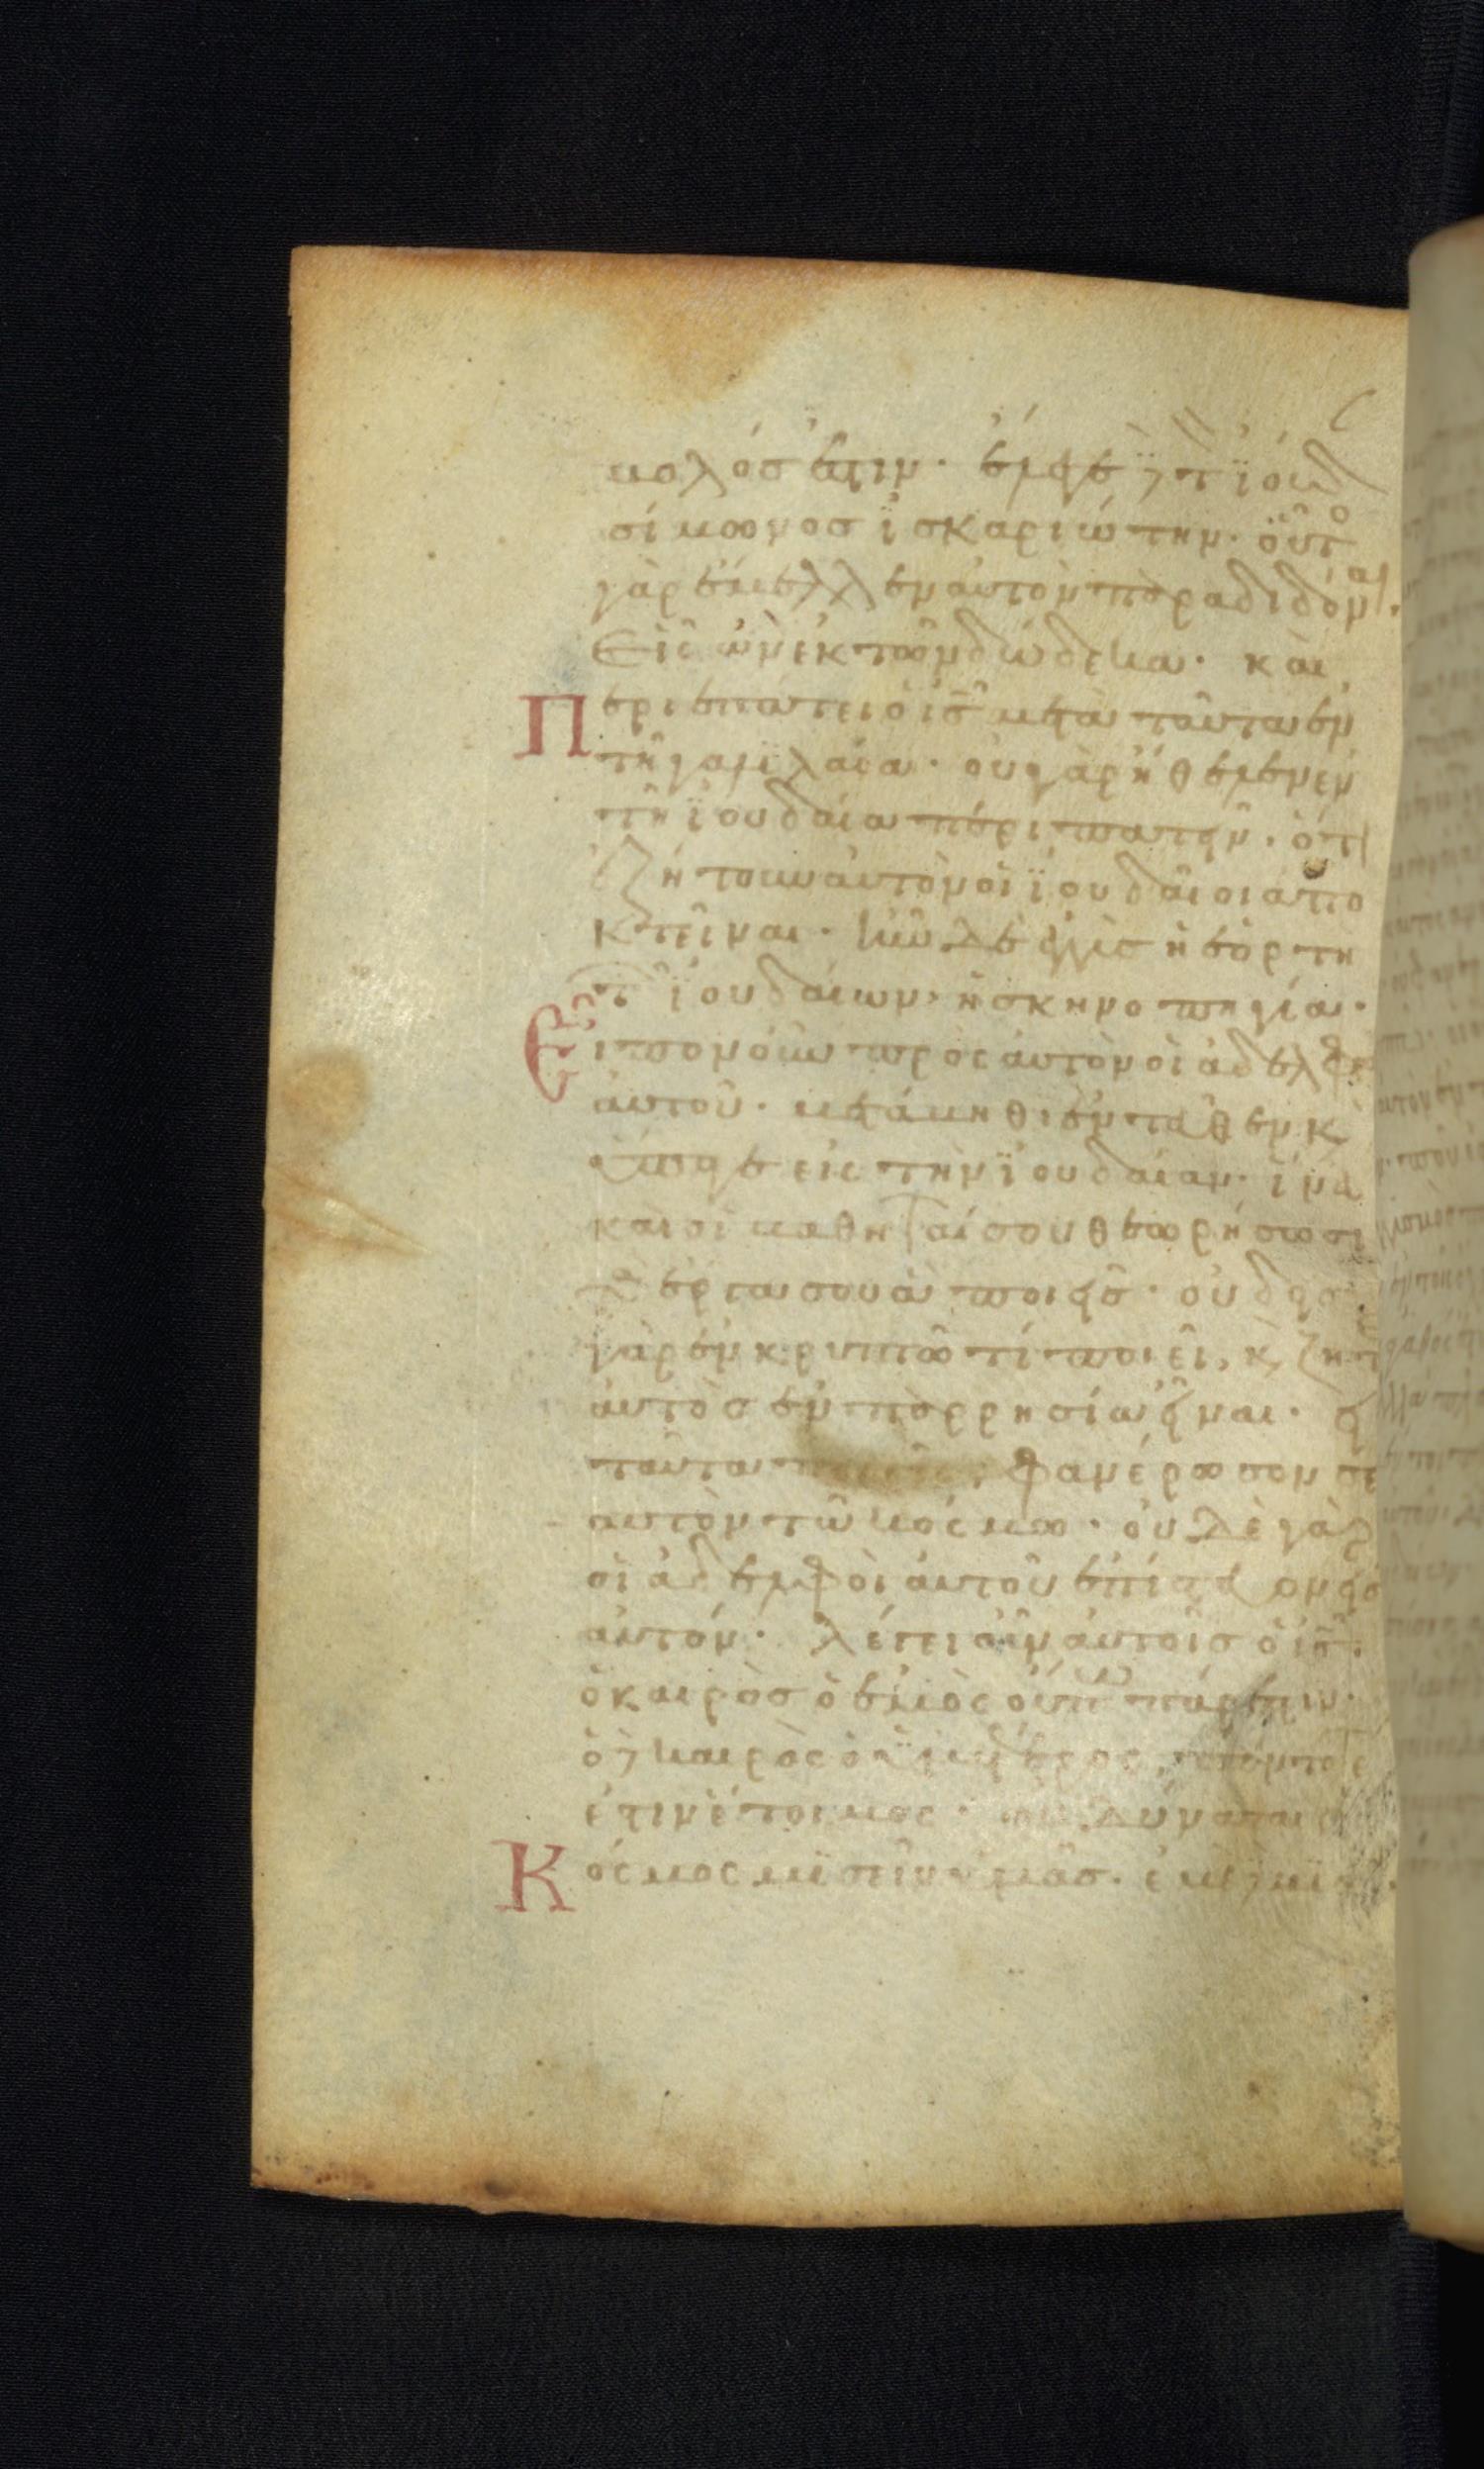 βολός ἐστιν. ἔλεγε δὲ τ ϊούδ
σίμωνοσ ϊσκαριώτην. οὗτο
γὰρ ἔμελλεν αὐτὸν παραδιδόναι.
Εἷς ὢν ἐκ τῶν δώδεκα. καὶ
Περιεπάτει ὁ ις μετὰ ταῦτα ἐν
τῆ γαλιλαία. οὐ γὰρ ἤθελεν ἐν
τῆ ϊουδαία περιπατεῖν. ὅτι
ἐζήτουν αὐτὸν οἱ ϊουδαῖοι ἀπο
κτεῖναι. ἦν δὲ ἐγγὺς ἡ ἑορτὴ
τ ϊουδαίων, ἡ σκηνοπηγία.
Εἶπον οὖν πρὸς αὐτὸν οἱ ἀδελφοὶ
αὐτοῦ. μετάβηθι ἐντεῦθεν κ
ὕπαγε εἰς τὴν ϊουδαίαν. ἵνα
καὶ οἱ μαθηταί σου θεωρήσωσι
τὰ ἔργα σου ἃ ποιεῖς. οὐδεὶς
γὰρ ἐν κρυπτῶ τί ποιεῖ, κ ζητεῖ
αὐτὸς ἐν παρρησία εἶναι. εἰ
ταῦτα ποιεῖς, φανέρωσον σε
αυτὸν τῶ κόσμω. οὐδὲ γὰρ
οἱ ἀδελφοὶ αὐτοῦ ἐπίστευον εἰς
αὐτόν. λέγει οὖν αὐτοῖς ὁ ις.
ὁ καιρὸς ὁ ἐμὸς οὔπω πάρεστιν.
ὁ δὲ καιρὸς ὁ ὑμέτερος, πάντοτε
ἐστιν ἕτοιμος. οὐ δύναται ὁ
Κόσμος μισεῖν ὑμᾶς. ἐμὲ δὲ μι